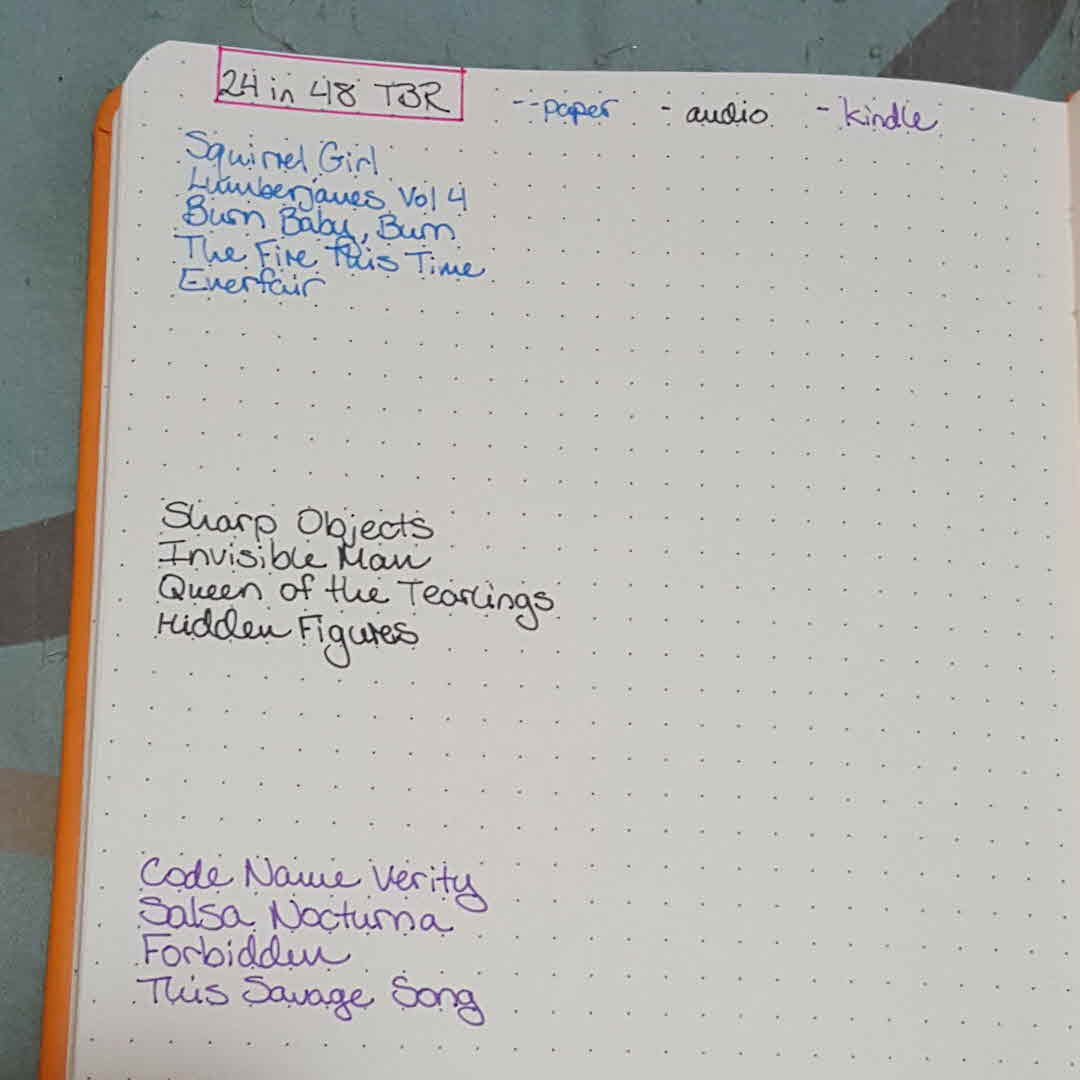 24 in 48 TBR --paper - audio - kindle
Squirrel Girl
Lumberjanes Vol 4
Burn Baby, Burn
The Fire This Time
Everfair
Sharp Objects
Invisible Man
Queen of the Tearlings
Hidden Figures
Code Name Verity
Salsa Nocturna
Forbidden
This Savage Song